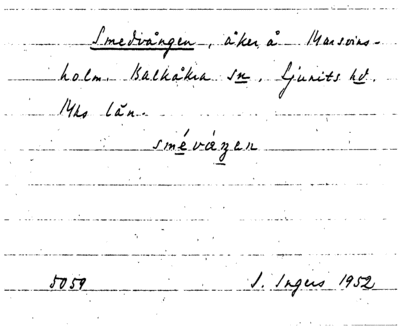 Smedvången, åker å Marsvins-
holm. Balkåkra sn. Ljunits hd.
Mhs län.
sméváŋen
5059 I. Ingers 1952